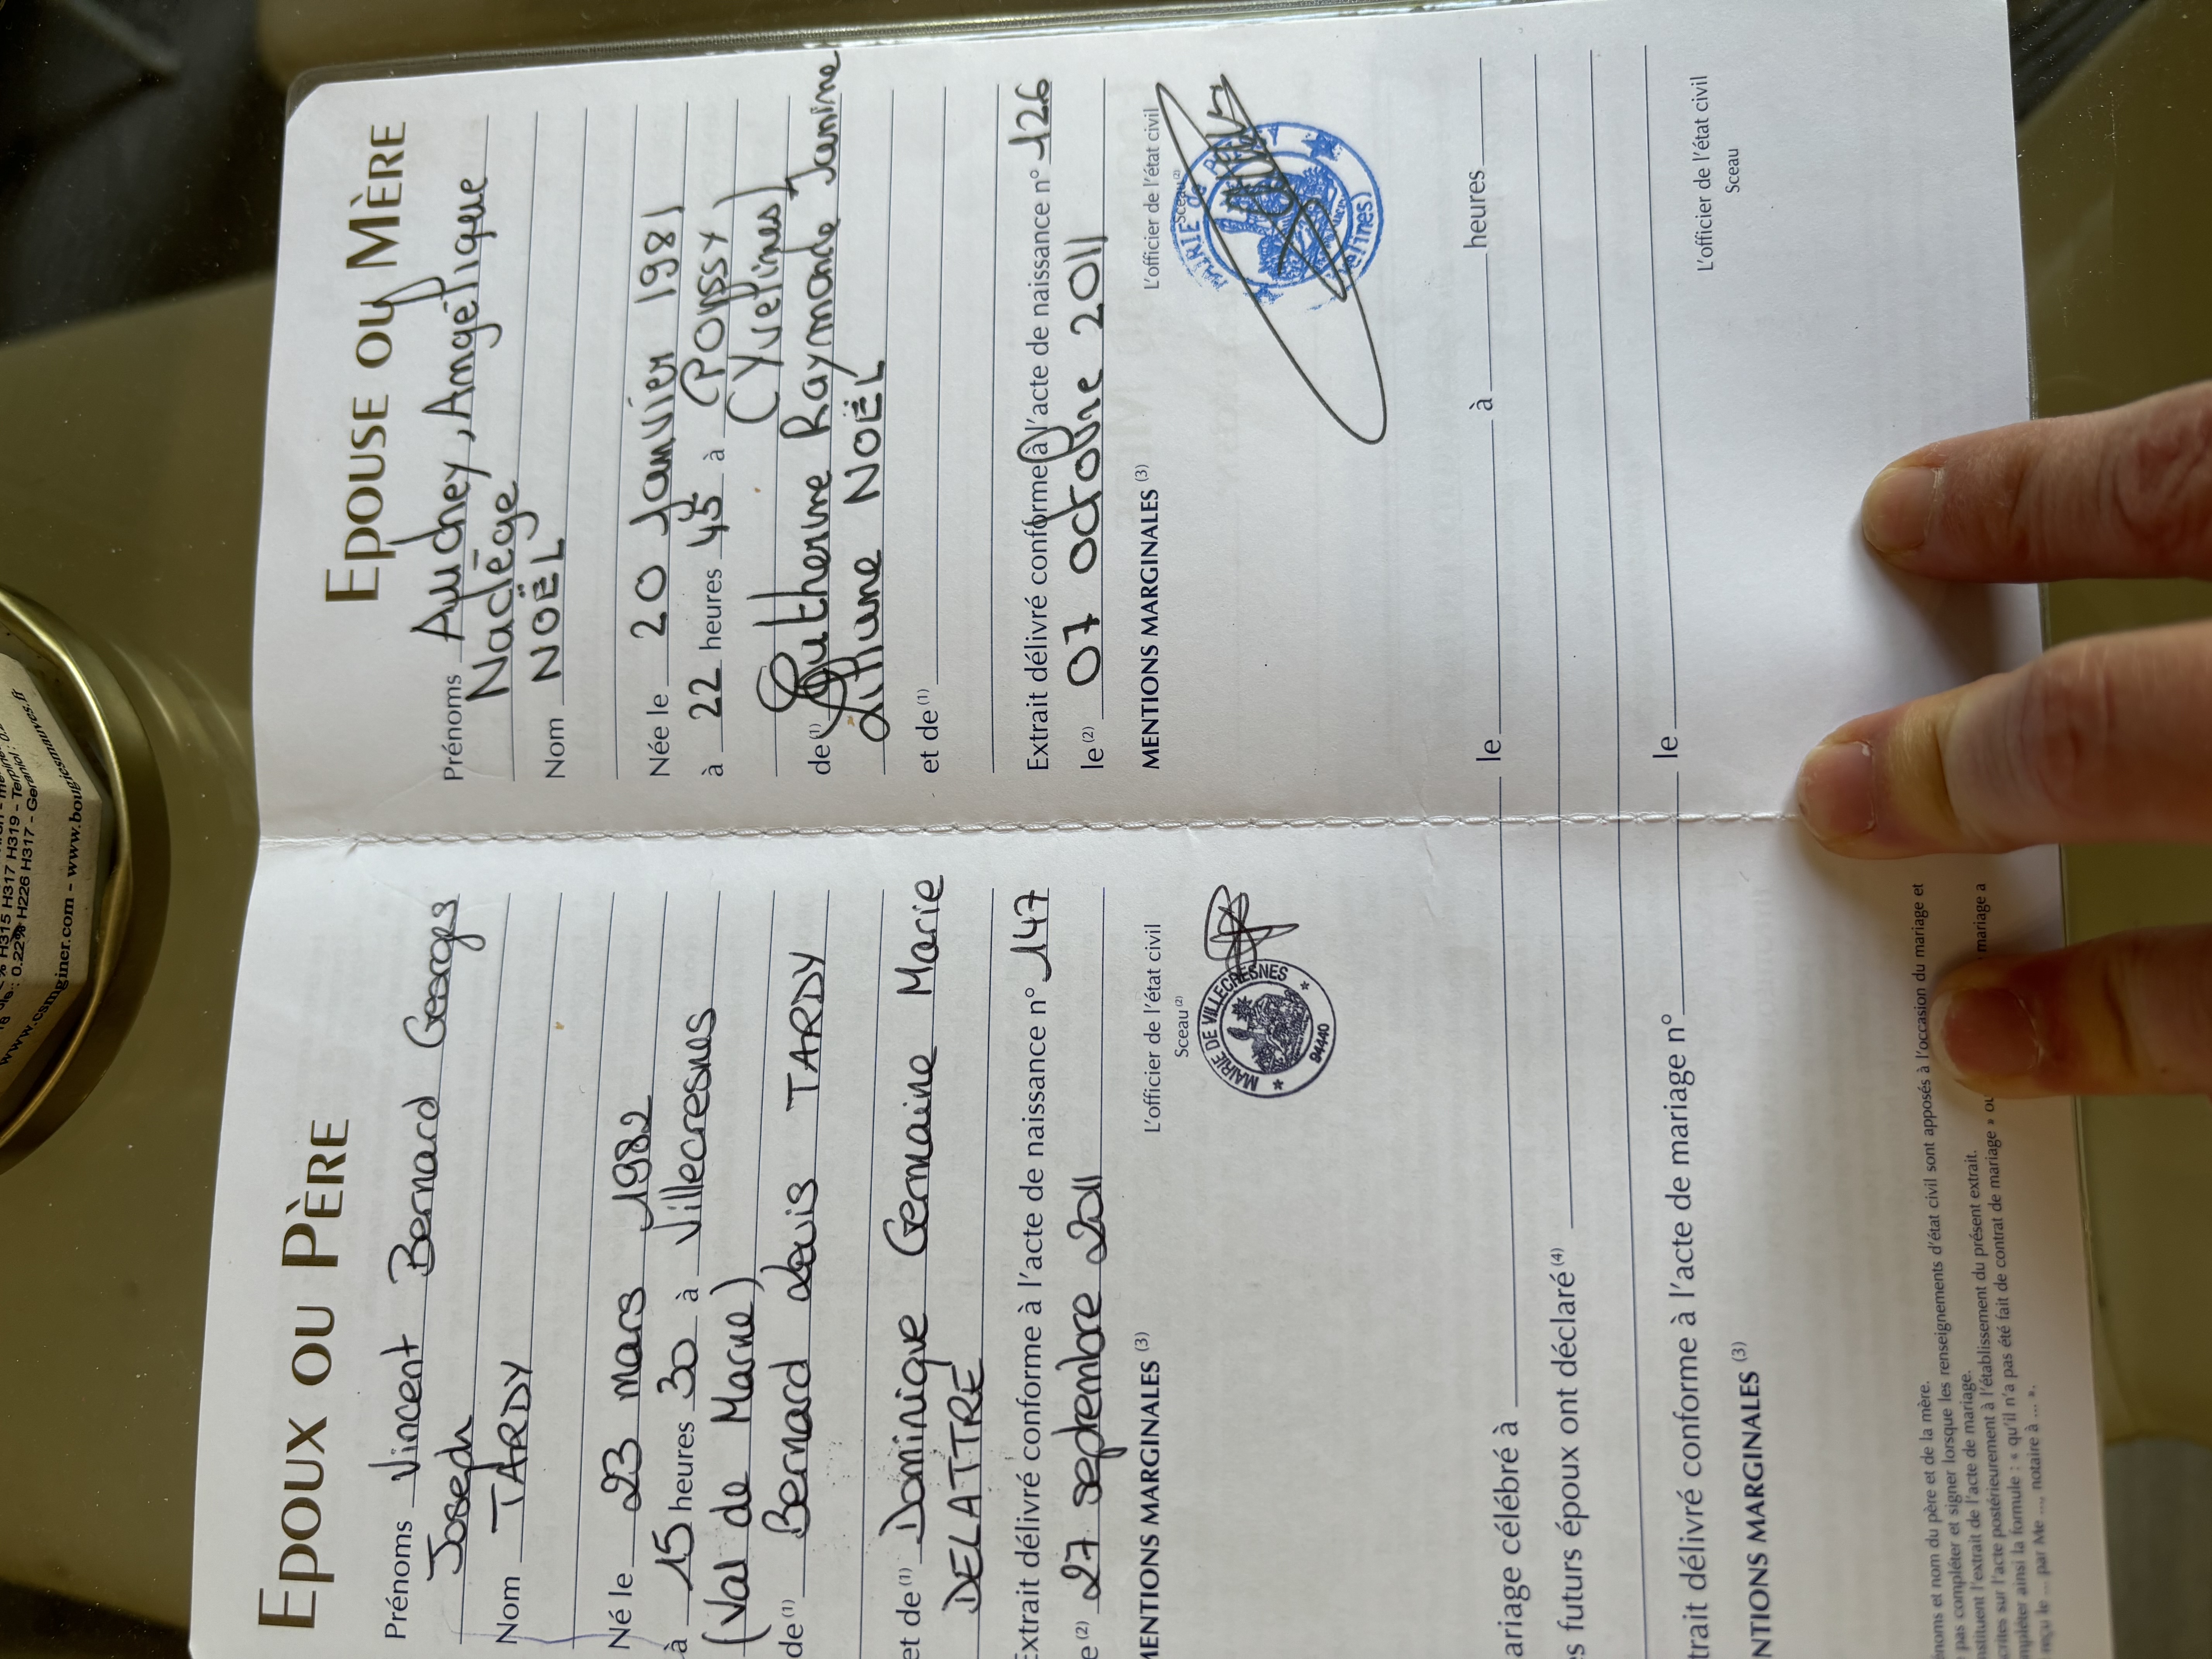 EPOUX OU PÈRE
Prénoms Vincent Bernard Georges
Joseph
Nom TARDY
Né le 23 mars 1982
à 15 heures 30 à Villecresnes
(Val de Marne)
de (1) Bernard Louis TARDY
et de (1) Dominique Germaine Marie
DELATTRE
Extrait délivré conforme à l'acte de naissance n° 147
le (2) 27 septembre 2011
MENTIONS MARGINALES (3)
L'officier de l'état civil
Sceau (2)
MAIRIE DE VILLECRESNES
94440
EPOUSE OU MÈRE
Prénoms Audrey, Angélique
Nadège
Nom NOËL
Née le 20 Janvier 1981
à 22 heures 45 à (POISSY)
(Yvelines)
de (1) Raymonde Janine
NOËL
et de (1)
Extrait délivré conforme à l'acte de naissance n° 126
le (2) 07 octobre 2011
MENTIONS MARGINALES (3)
L'officier de l'état civil
Sceau (2)
MAIRIE de
(Yvelines)
ariage célébré à le à heures
s futurs époux ont déclaré (4)
trait délivré conforme à l'acte de mariage n° le
NTIONS MARGINALES (3)
L'officier de l'état civil
Sceau
noms et nom du père et de la mère.
pas compléter et signer lorsque les renseignements d'état civil sont apposés à l'occasion du mariage et
nstituent l'extrait de l'acte de mariage.
crites sur l'acte postérieurement à l'établissement du présent extrait.
mpléter ainsi la formule : « qu'il n'a pas été fait de contrat de mariage » ou mariage a
reçu le ... par Me ..., notaire à ... ».
H315 H317 H319
0.22% H226 H317 - Geraniol
www.csmginer.com - www.bougiesmauves.fr